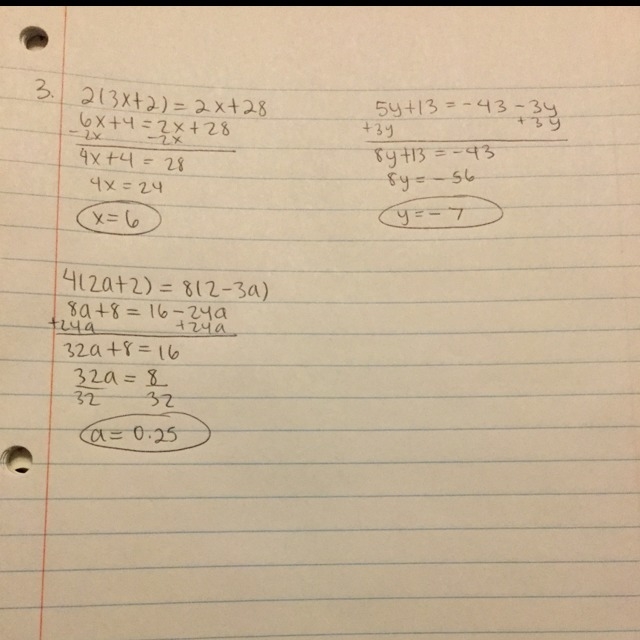 3.
2(3x+2) = 2x+28
6x+4 = 2x+28
-2x -2x
4x+4 = 28
4x = 24
x = 6
5y+13 = -43 - 3y
+3y +3y
8y+13 = -43
8y = -56
y = -7
4(2a+2) = 8(2-3a)
8a+8 = 16-24a
+24a +24a
32a+8 = 16
32a = 8
32 32
a = 0.25